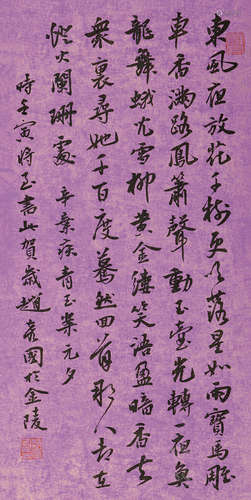 東風夜放花千樹更吹落星如雨寶馬雕
車香滿路鳳簫聲動玉壺光轉一夜魚
龍舞蛾兒雪柳黃金縷笑語盈暗香去
眾裏尋她千百度驀然回首那人卻在
燈火闌珊處 辛棄疾青玉案元夕
時壬寅將至書此賀歲趙彥國於金陵